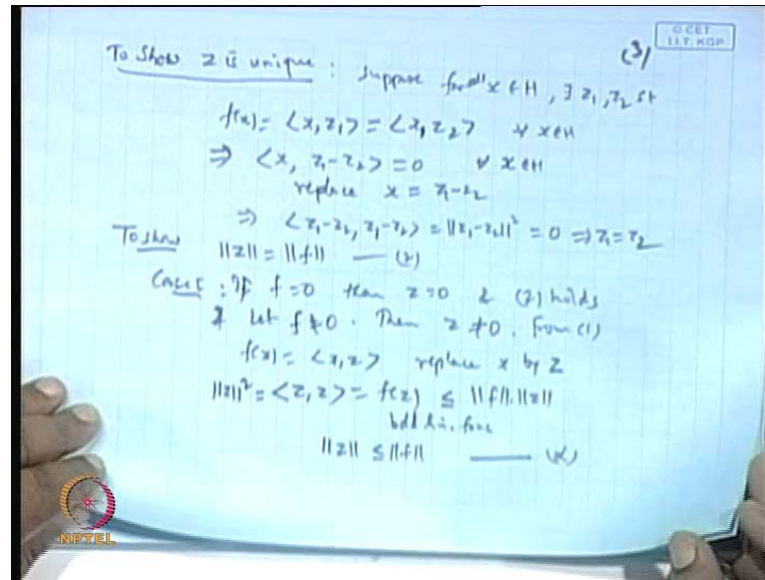 © CET
I.I.T. KGP
(3)
To Show z is unique : Suppose for all x ∈ H, ∃ z₁, z₂ st
f(x) = <x, z₁> = <x, z₂> ∀ x ∈ H
⇒ <x, z₁-z₂> = 0 ∀ x ∈ H
replace x = z₁-z₂
⇒ <z₁-z₂, z₁-z₂> = ||z₁-z₂||² = 0 ⇒ z₁ = z₂
To show
||z|| = ||f|| — (2)
: If f = 0 then z = 0 & (2) holds
Let f ≠ 0. Then z ≠ 0. from (1)
f(x) = <x, z> replace x by z
||z||² = <z, z> = f(z) ≤ ||f||.||z||
bdd lin. func
||z|| ≤ ||f|| —
NPTEL